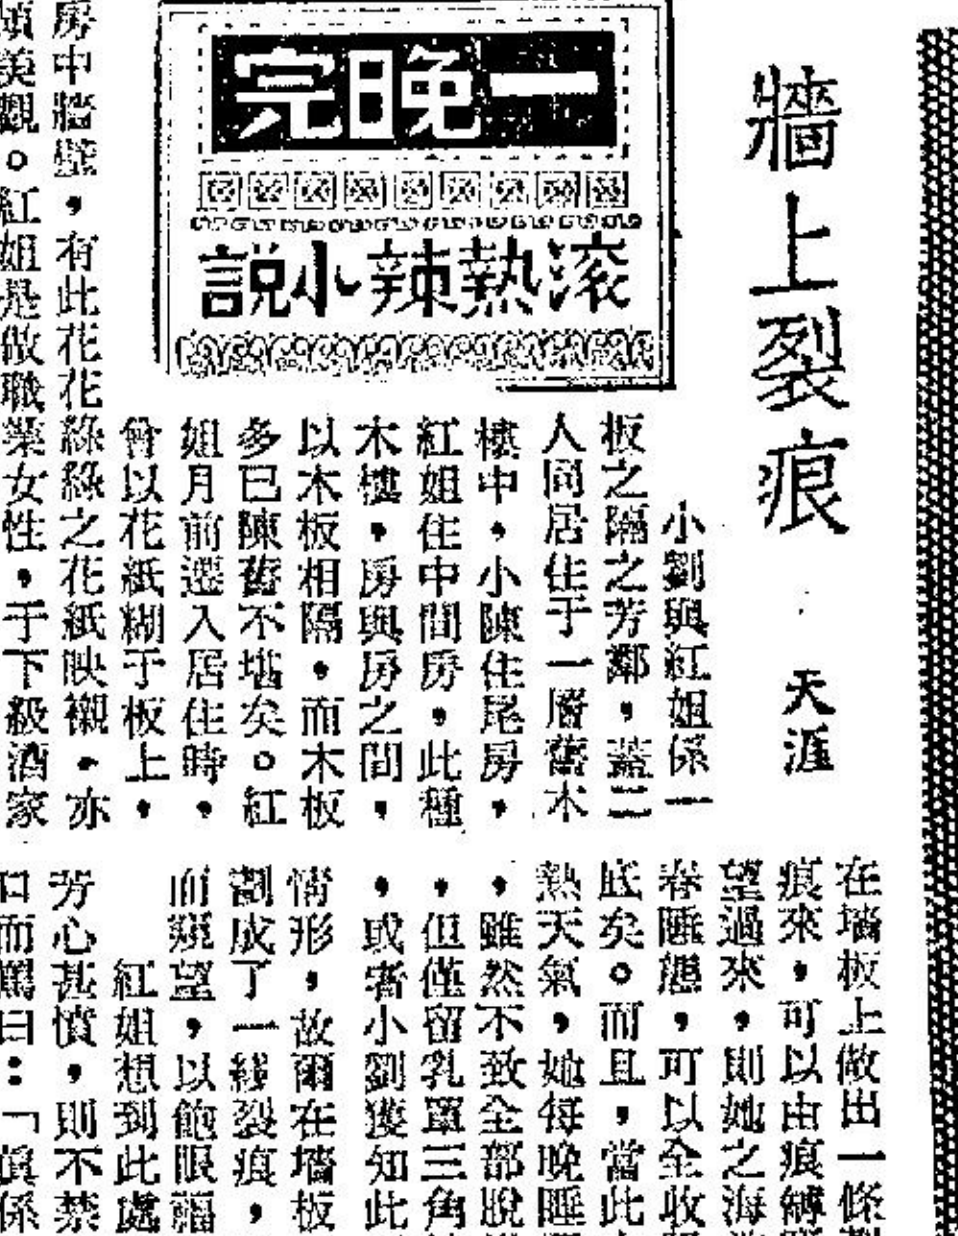 牆上裂痕
天涯
一晚完
滾熱辣小說
小劉與紅姐係一
板之隔之芳鄰,蓋三
人同居住于一層舊木
樓中,小陳住尾房,
紅姐住中間房,此種
木樓,房與房之間,
以木板相隔,而木板
多已陳舊不堪矣。紅
姐月前遷入居住時,
曾以花紙糊于板上,
房中牆壁,有此花花綠綠之花紙映襯,亦
頗美觀。紅姐是做職業女性,于下級酒家
在墙板上做出一條
痕來,可以由痕罅
望過來,則她之海
春睡態,可以全收
底矣。而且,當此
熱天氣,她每晚睡
,雖然不致全部脫
,但僅留乳罩三角
,或者小劉獲知此
情形,故爾在墙板
劃成了一綫裂痕,
而窺望,以飽眼福
紅姐想到此處
芳心甚憤,則不禁
口而罵曰:「真係